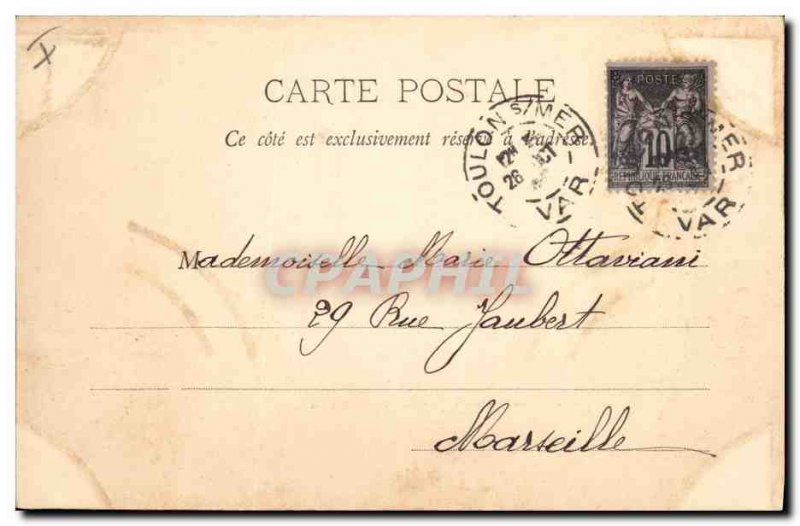 X
CARTE POSTALE
Ce côté est exclusivement réservé à l'adresse
TOULON S/MER
26
VAR
POSTE
10
REPUBLIQUE FRANCAISE
MER
VAR
Mademoiselle Marie Ottaviani
CPAPHIL
29 Rue Jaubert
Marseille